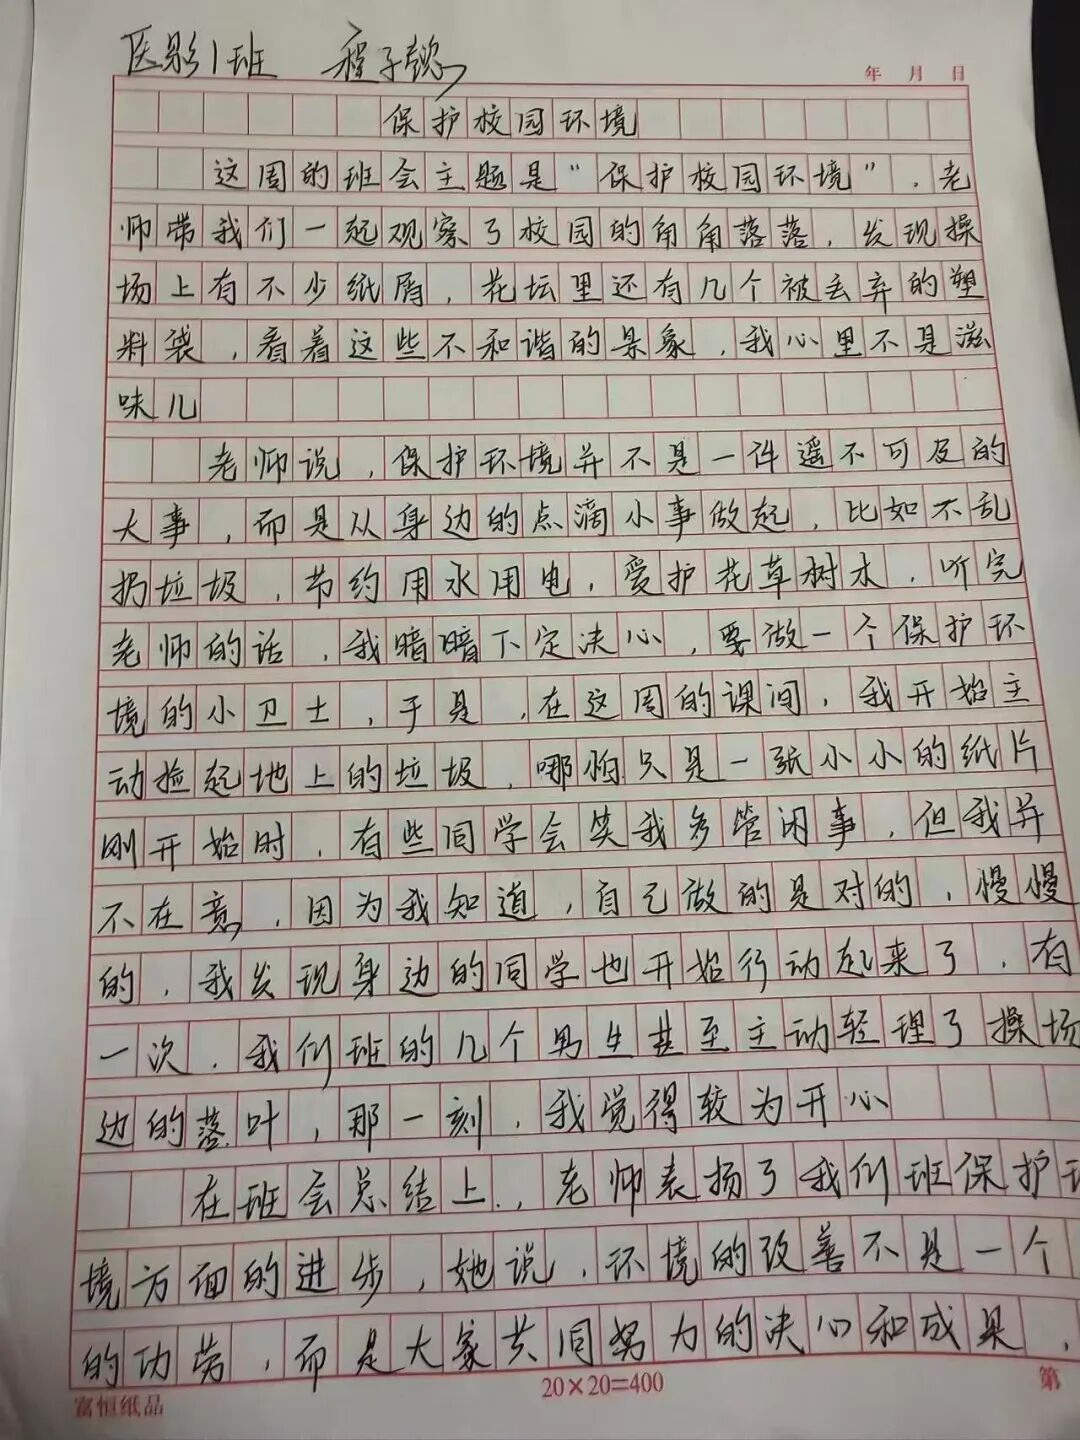 医影1班 程子懿
年 月 日
保护校园环境
这周的班会主题是“保护校园环境”,老
师带我们一起观察了校园的角角落落,发现操
场上有不少纸屑,花坛里还有几个被丢弃的塑
料袋,看着这些不和谐的景象,我心里不是滋
味儿
老师说,保护环境并不是一件遥不可及的
大事,而是从身边的点滴小事做起,比如不乱
扔垃圾,节约用水用电,爱护花草树木,听完
老师的话,我暗暗下定决心,要做一个保护环
境的小卫士,于是,在这周的课间,我开始主
动捡起地上的垃圾,哪怕只是一张小小的纸片
刚开始时,有些同学会笑我多管闲事,但我并
不在意,因为我知道,自己做的是对的,慢慢
的,我发现身边的同学也开始行动起来了,有
一次,我们班的几个男生甚至主动轻理了操场
边的落叶,那一刻,我觉得较为开心
在班会总结上,老师表扬了我们班保护环
境方面的进步,她说,环境的改善不是一个
的功劳,而是大家共同努力的决心和成果,
富恒纸品
20×20=400
第